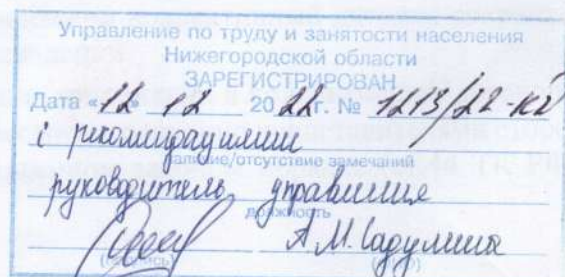 Управление по труду и занятости населения
Нижегородской области
ЗАРЕГИСТРИРОВАН
Дата «12» 12 2022г. № 1213/22-КД
с рекомендациями
наличие/отсутствие замечаний
руководитель управления
должность
(подпись)
А.М.